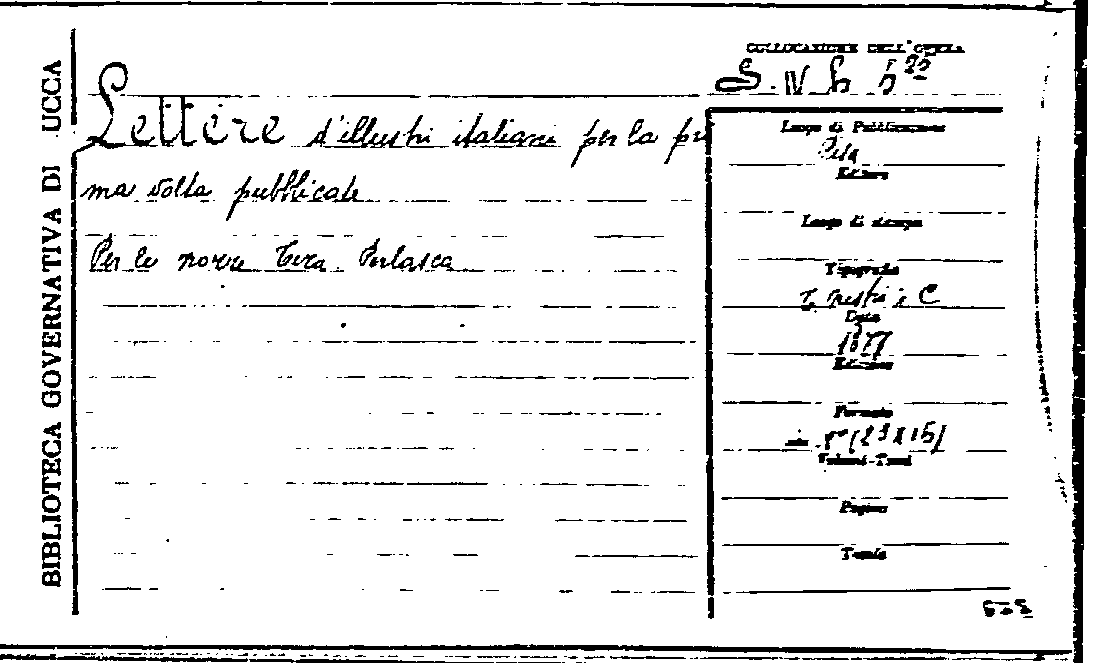 BIBLIOTECA GOVERNATIVA DI UCCA
COLLOCAZIONE DELL'OPERA
Lettere d'illustri italiani per la pri
ma volta pubblicate
Per le nozze Perlasca
Luogo di Pubblicazione
Pisa
Editore
Luogo di stampa
Tipografia
T. Nistri e C
Data
1877
Edizione
Formato
in 8° (23x15)
Volumi-Tomi
Pagine
Tavole